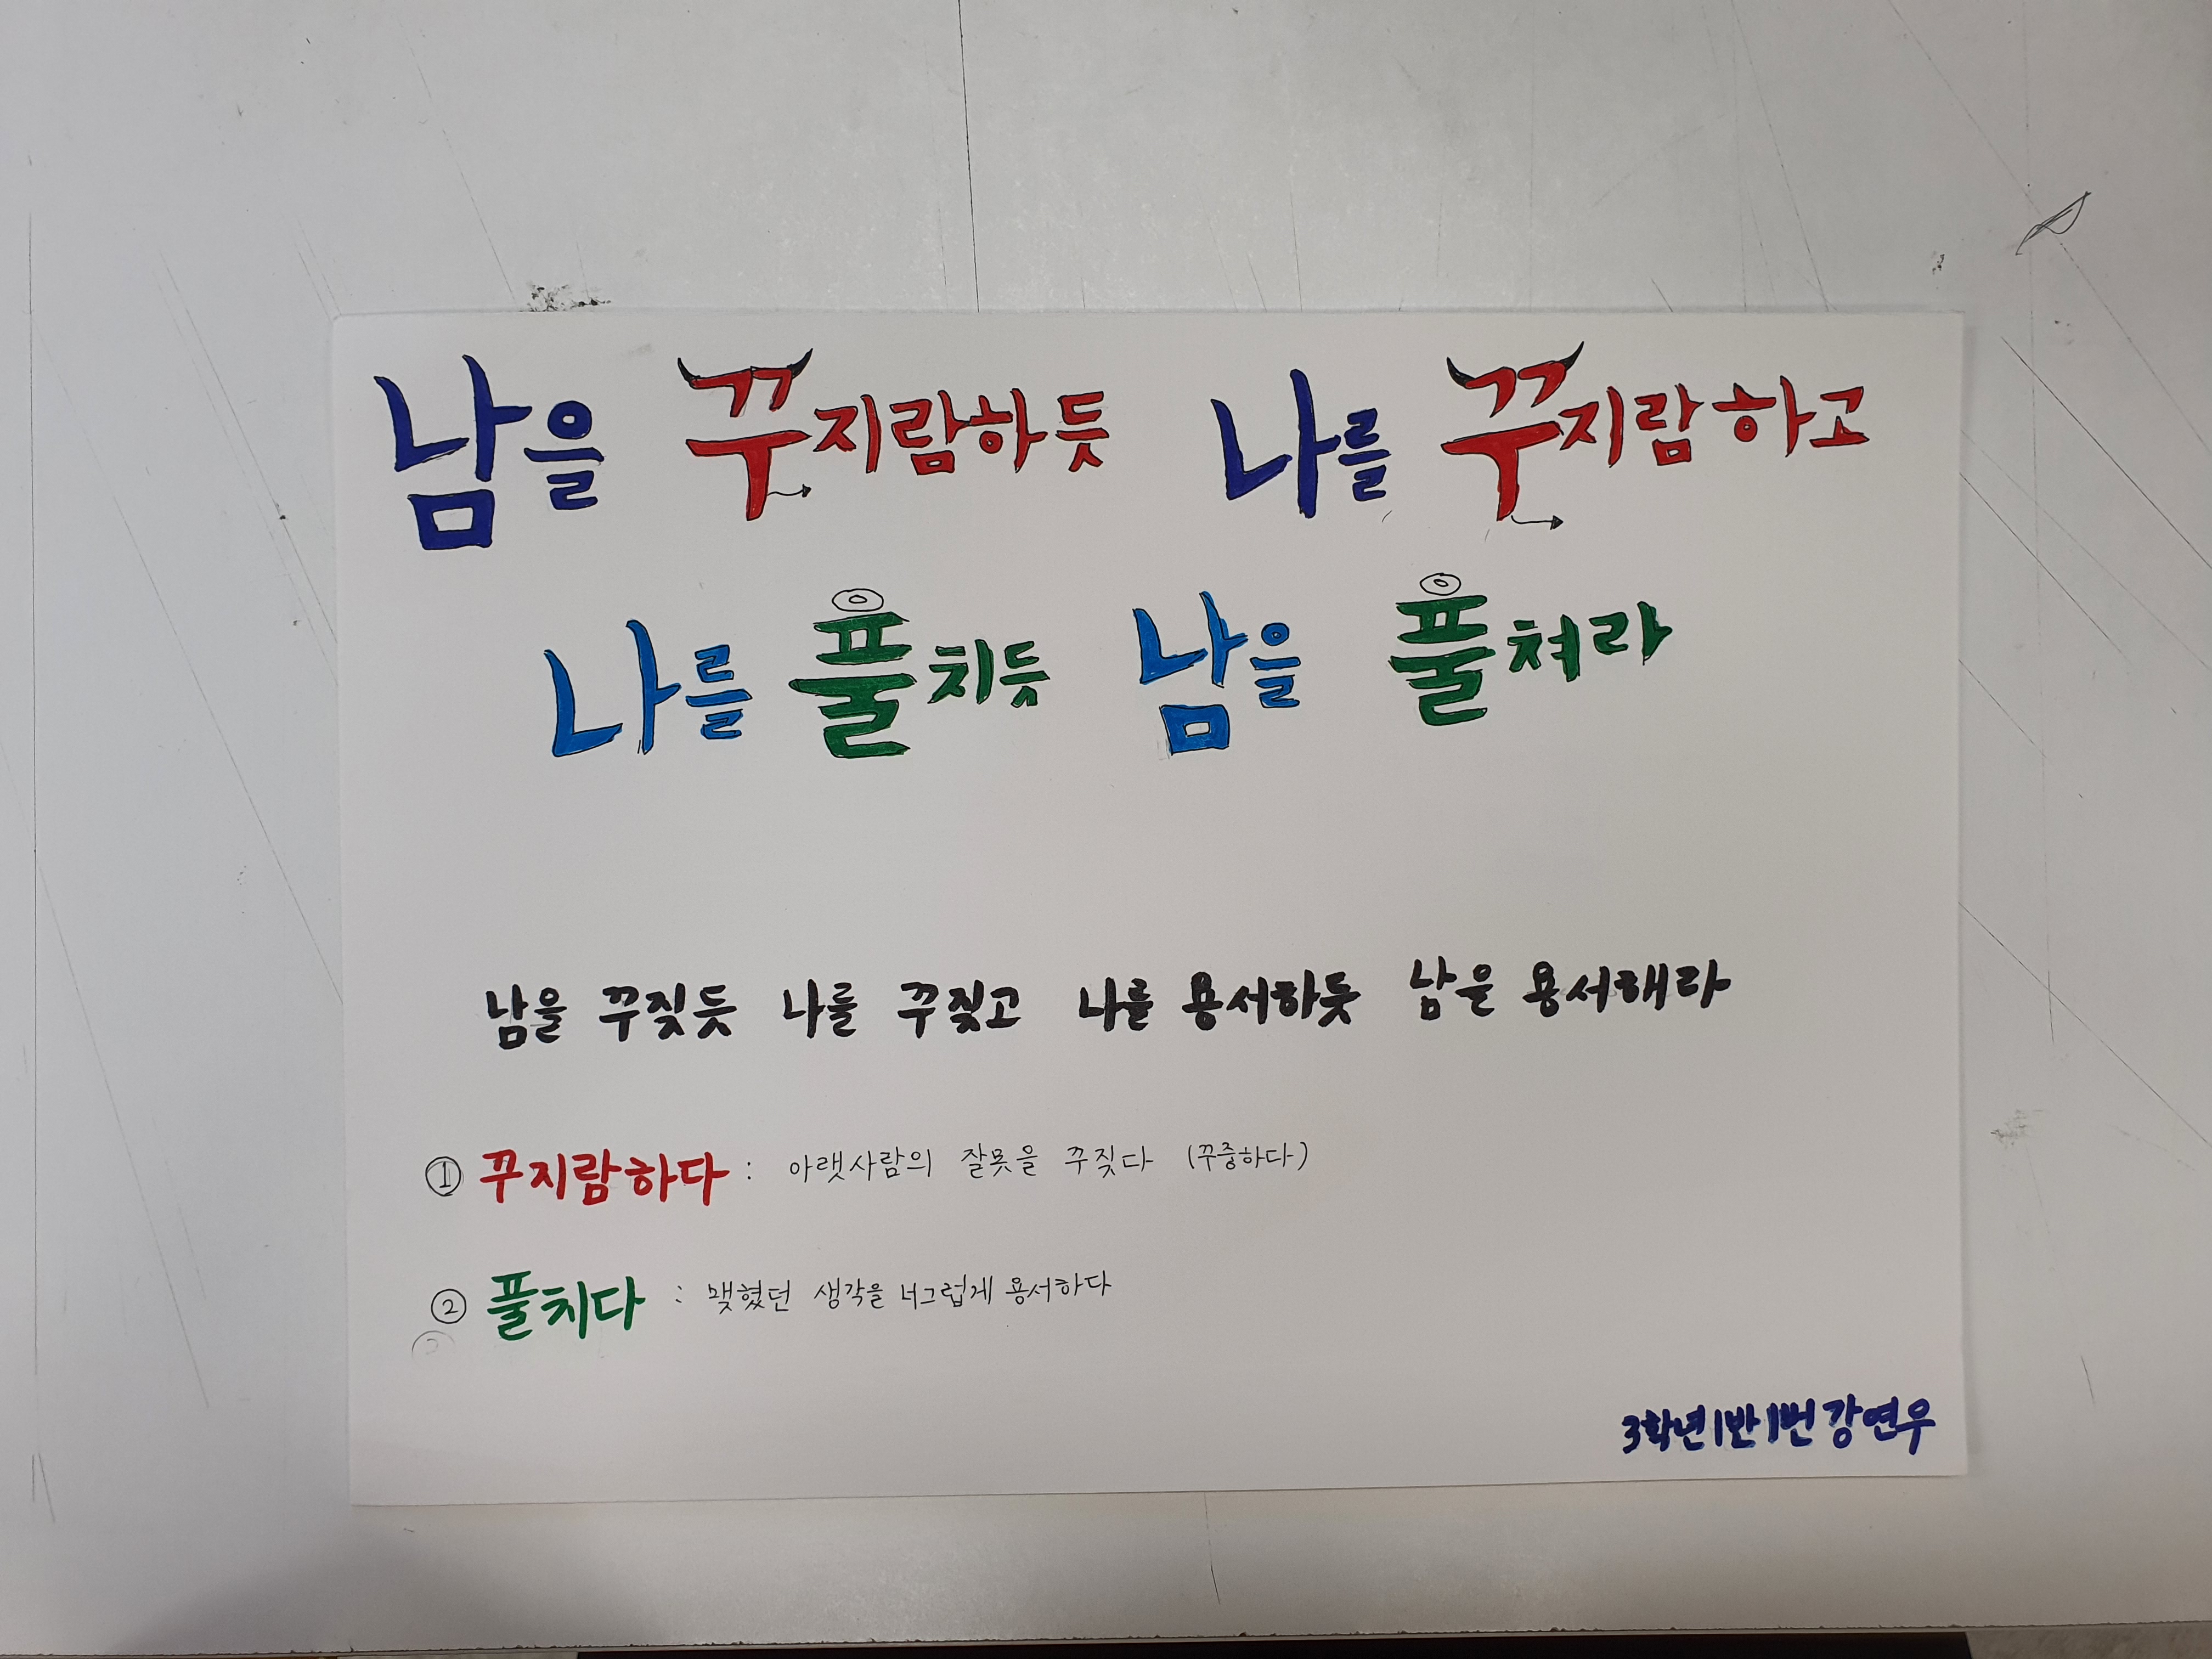 남을 꾸지람하듯 나를 꾸지람하고
나를 풀치듯 남을 풀쳐라
남을 꾸짖듯 나를 꾸짖고 나를 용서하듯 남을 용서해라
① 꾸지람하다 : 아랫사람의 잘못을 꾸짖다 (꾸중하다)
② 풀치다 : 맺혔던 생각을 너그럽게 용서하다
3학년1반1번 강연우